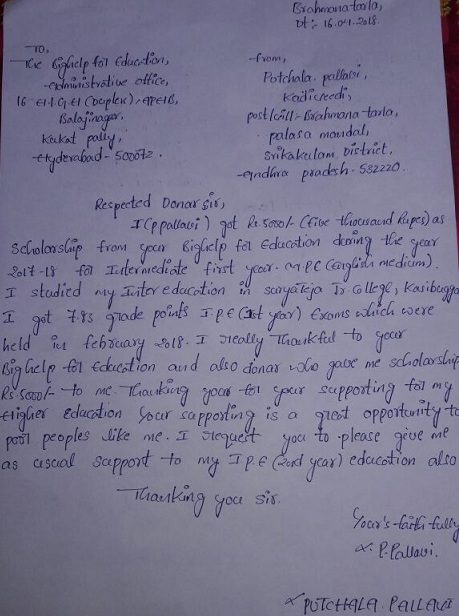 Brahmanatarla,
Dt:- 16.04.2018.
To,
The Bighelp for Education,
Administrative office,
Balajinagar,
Kukat pally,
Hyderabad - 500072.
from,
Potchala. pallavi,
post/vill:- Brahmana tarla,
palasa mandal,
Srikakulam District,
Andhra pradesh - 532220.
Respected Donar sir,
I (p.pallavi) got Rs.5000/- (five thousand Rupes) as
Scholarship from your Bighelp for Education during the year
2017-18 for Intermediate first year. M.P.C (English medium).
I studied my Inter education in suryateja Jr College, Kasibugga
I got 7.83 grade points I.P.E (1st year) Exams which were
held in february 2018. I really Thankful to your
Bighelp for Education and also donar who gave me scholarship
Rs.5000/- to me. Thanking your for your supporting for my
Higher Education your supporting is a great opportunity to
poor peoples like me. I request you to please give me
as usual support to my I.P.E (2nd year) education also
Thanking you sir.
Your's faithfully
x. P.Pallavi.
x POTCHALA. PALLAVI